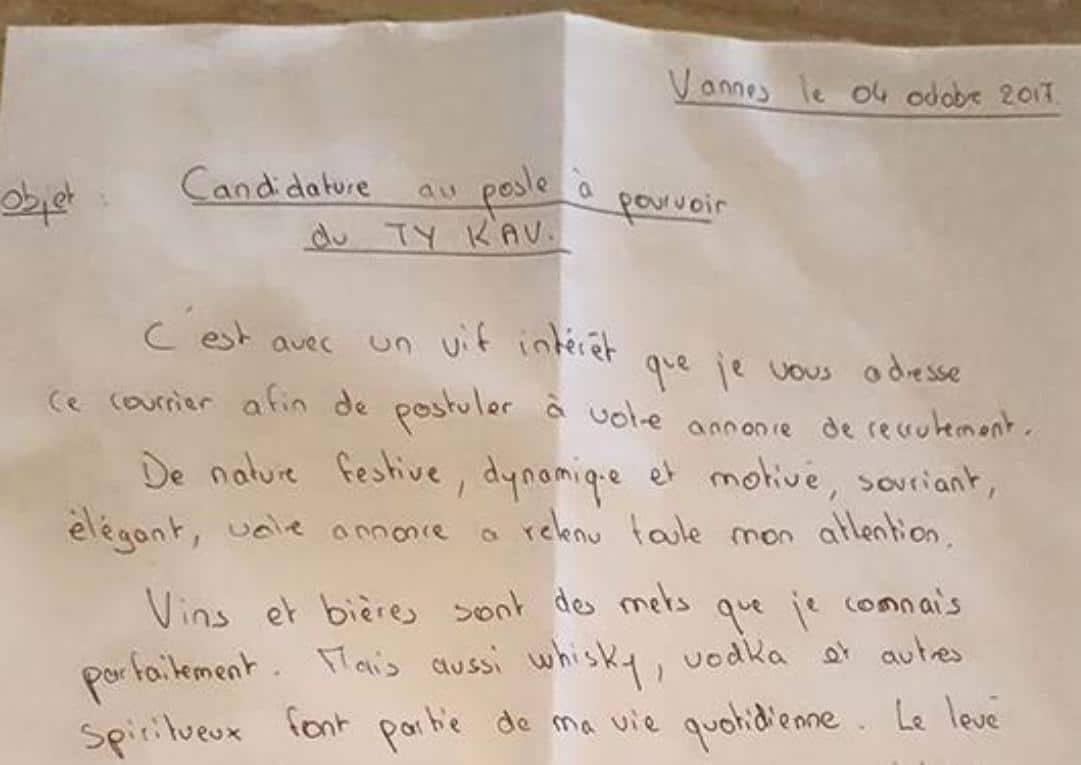 Vannes le 04 octobre 2017.
Objet : Candidature au poste à pourvoir
du TY KAV.
C'est avec un vif intérêt que je vous adresse
ce courrier afin de postuler à votre annonce de recrutement.
De nature festive, dynamique et motivé, souriant,
élégant, votre annonce a retenu toute mon attention.
Vins et bières sont des mets que je connais
parfaitement. Mais aussi whisky, vodka et autres
spiritueux font partie de ma vie quotidienne. Le levé